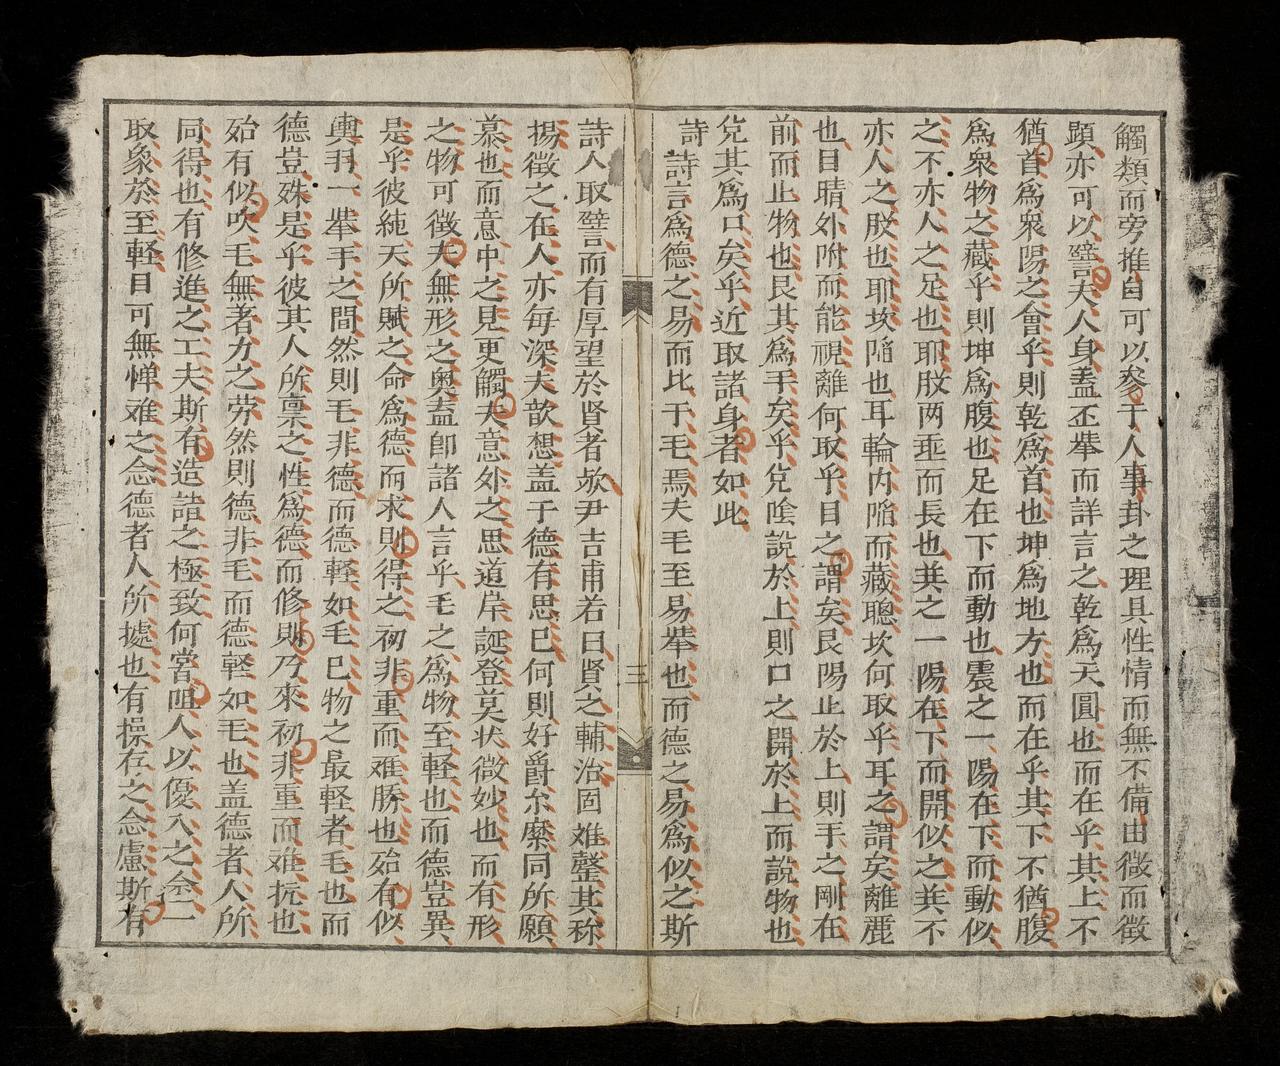 觸類而旁推自可以參于人事卦之理具性情而無不備由徵而徵
顕亦可以譬夫人身盖丕㪯而詳言之乾爲天圓也而在乎其上不
猶首爲衆陽之會乎則乾爲首也坤爲地方也而在乎其下不猶腹
爲衆物之藏乎則坤爲腹也足在下而動也震之一陽在下而動似
之不亦人之足也耶股两垂而長也巽之一陽在下而開似之巽不
亦人之股也耶坎陷也耳輪内陷而藏聰坎何取乎耳之謂矣離麗
也目晴外附而能視離何取乎目之謂矣艮陽止於上則手之剛在
前而止物也艮其爲手矣乎兌隂說於上則口之開於上而說物也
兌其爲口矣乎近取諸身者如此
詩 詩言爲德之易而比于毛焉夫毛至易㪯也而德之易爲似之斯
三
詩人取譬言而有厚望於賢者欤尹吉甫若曰賢之輔治固难罄其称
揚徵之在人亦每深夫歆想盖于德有思已何則好爵尒縻同所願
慕也而意中之見更觸夫意外之思道岸誕登莫状微妙也而有形
之物可徵夫無形之奥盍卽諸人言乎毛之爲物至軽也而德豈異
是乎彼純天所賦之命爲德而求則得之初非重而难勝也殆有似
輿羽一㪯手之間然則毛非德而德軽如毛已物之最軽者毛也而
德豈殊是乎彼其人所禀之性爲德而修則乃來初非重而难抚也
殆有似吹毛無著力之劳然則德非毛而德軽如毛也盖德者人所
同得也有修進之工夫斯有造詣之極致何當阻人以優入之途二
取象於至軽目可無惮难之念德者人所據也有操存之念慮斯有